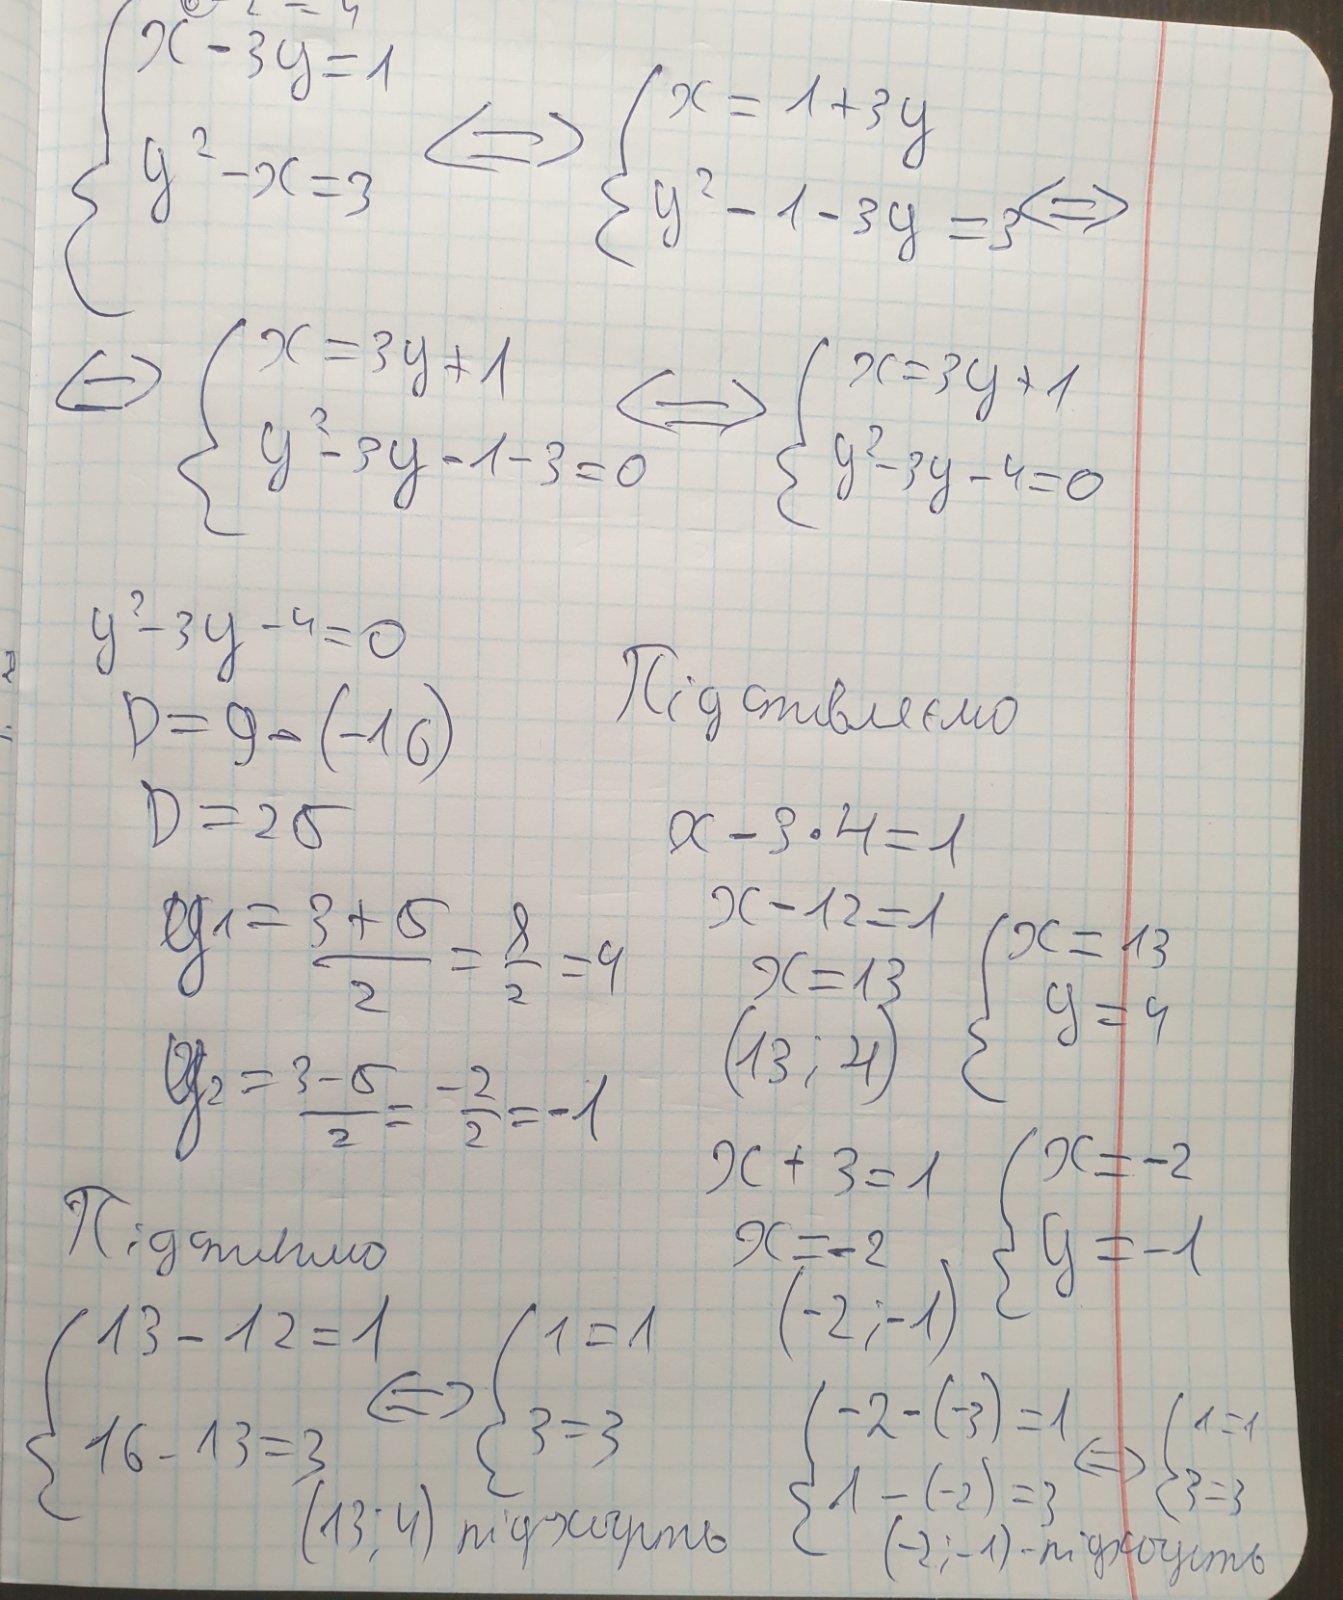 x - 3y = 1
y² - x = 3
⟺
x = 1 + 3y
y² - 1 - 3y = 3 ⟺
⟺
x = 3y + 1
y² - 3y - 1 - 3 = 0
⟺
x = 3y + 1
y² - 3y - 4 = 0
y² - 3y - 4 = 0
D = 9 - (-16)
D = 25
y₁ = (3 + 5)/2 = 8/2 = 4
y₂ = (3 - 5)/2 = -2/2 = -1
Підствляємо
x - 3 · 4 = 1
x - 12 = 1
x = 13
(13; 4)
x = 13
y = 4
x + 3 = 1
x = -2
(-2; -1)
x = -2
y = -1
13 - 12 = 1
16 - 13 = 3
⟺
1 = 1
3 = 3
(13; 4) підходить
-2 - (-3) = 1
1 - (-2) = 3
⟺
1 = 1
3 = 3
(-2; -1) - підходить